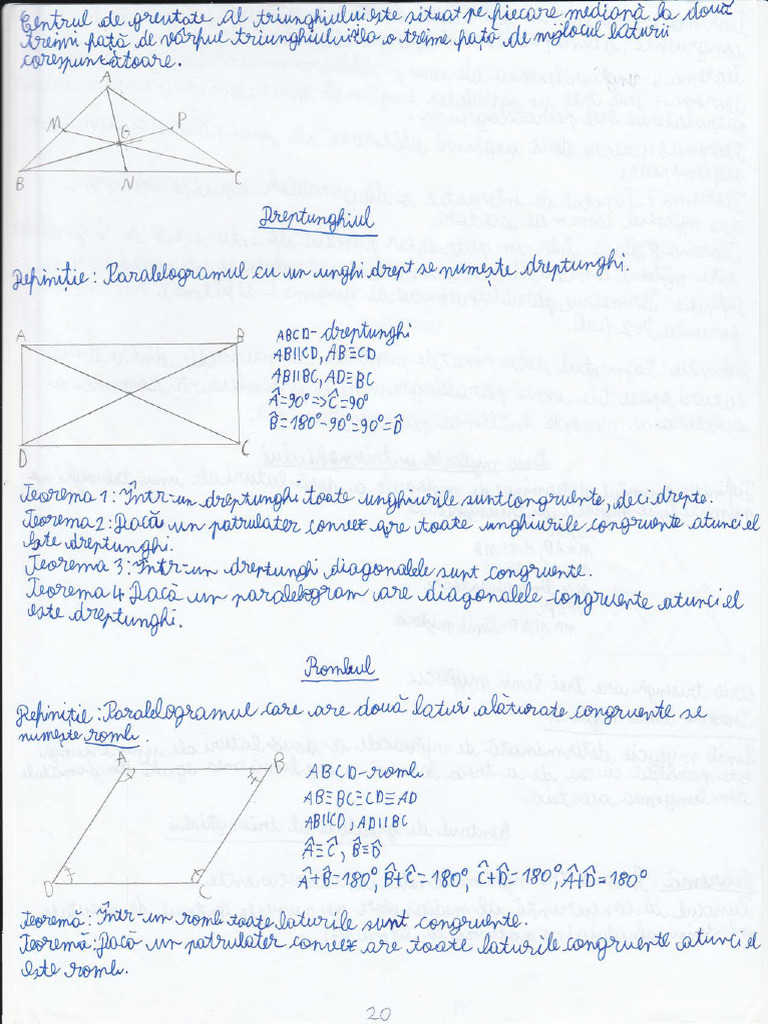 Centrul de greutate al triunghiului este situat pe fiecare mediană la două
treimi față de vârful triunghiului și la o treime față de mijlocul laturii
corespunzătoare.
A
M
P
G
B
N
C
Dreptunghiul
Definiție: Paralelogramul cu un unghi drept se numește dreptunghi.
A
B
ABCD- dreptunghi
AB||CD, AB≡CD
AB||BC, AD≡BC
Â=90°=>Ĉ=90°
B̂=180°-90°=90°=D̂
D
C
Teorema 1: Într-un dreptunghi toate unghiurile sunt congruente, deci drepte.
Teorema 2: Dacă un patrulater convex are toate unghiurile congruente atunci el
este dreptunghi.
Teorema 3: Într-un dreptunghi diagonalele sunt congruente.
Teorema 4 Dacă un paralelogram are diagonalele congruente atunci el
este dreptunghi.
Rombul
Definiție: Paralelogramul care are două laturi alăturate congruente se
numește romb.
A
B
ABCD-romb
AB≡BC≡CD≡AD
AB||CD, AD||BC
Â≡Ĉ, B̂≡D̂
Â+B̂=180°, B̂+Ĉ=180°, Ĉ+D̂=180°, Â+D̂=180°
D
C
Teoremă: Într-un romb toate laturile sunt congruente.
Teoremă: Dacă un patrulater convex are toate laturile congruente atunci el
este romb.
20